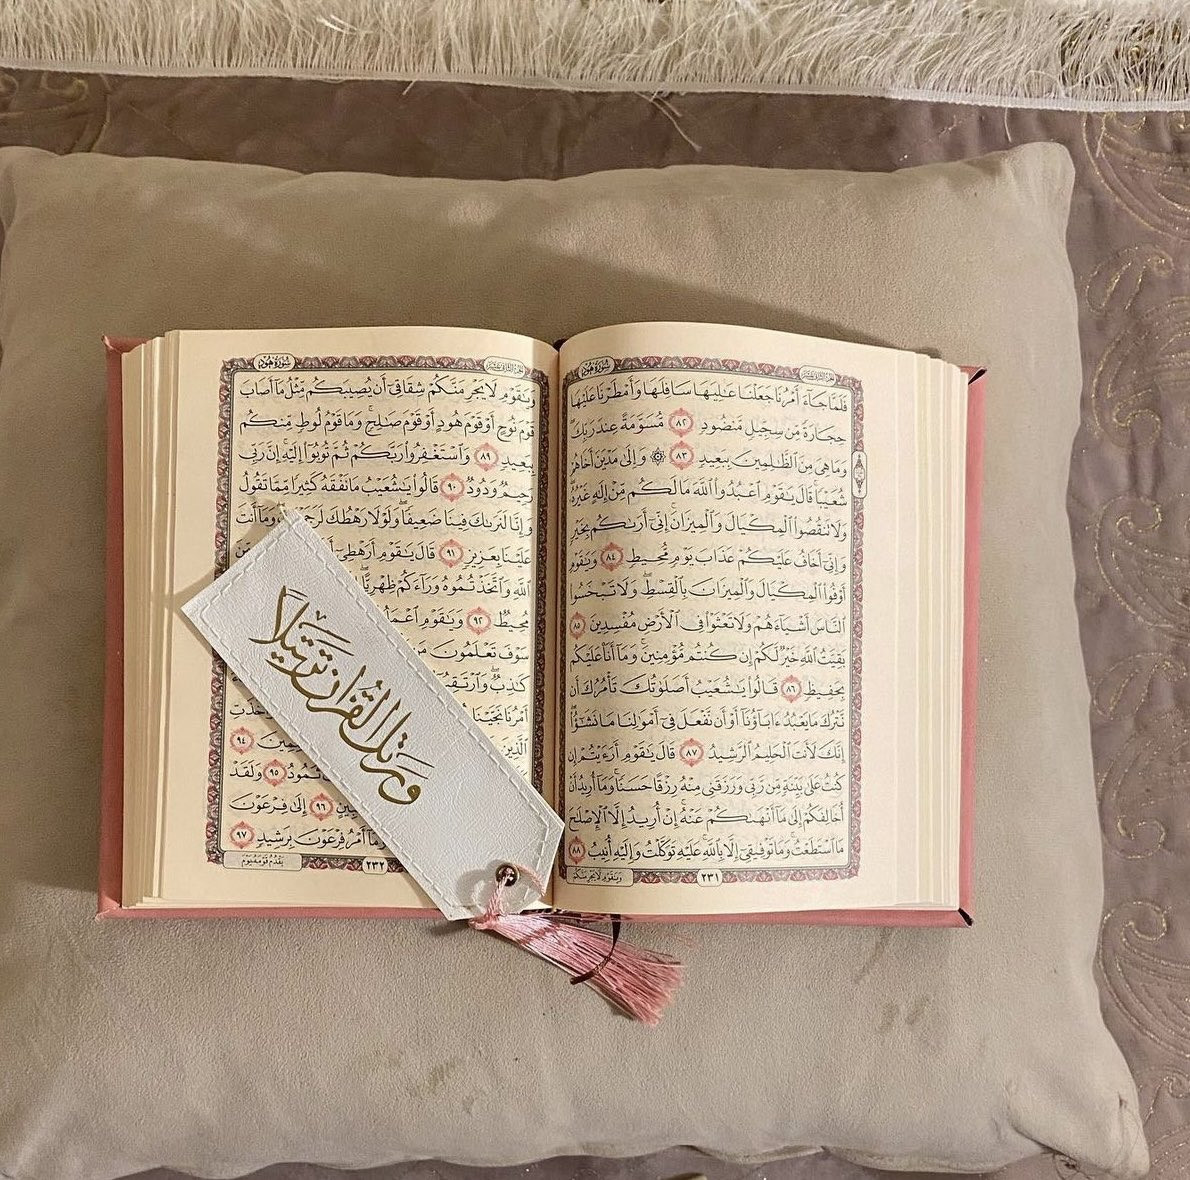 سُورَةُ هُودٍ
فَلَمَّا جَآءَ أَمْرُنَا جَعَلْنَا عَٰلِيَهَا سَافِلَهَا وَأَمْطَرْنَا عَلَيْهَا
حِجَارَةً مِّن سِجِّيلٍ مَّنضُودٍ ٨٢ مُّسَوَّمَةً عِندَ رَبِّكَ
وَمَا هِىَ مِنَ ٱلظَّٰلِمِينَ بِبَعِيدٍ ٨٣ ۞ وَإِلَىٰ مَدْيَنَ أَخَاهُمْ
شُعَيْبًا قَالَ يَٰقَوْمِ ٱعْبُدُوا۟ ٱللَّهَ مَا لَكُم مِّنْ إِلَٰهٍ غَيْرُهُۥ
وَلَا تَنقُصُوا۟ ٱلْمِكْيَالَ وَٱلْمِيزَانَ إِنِّىٓ أَرَىٰكُم بِخَيْرٍ
وَإِنِّىٓ أَخَافُ عَلَيْكُمْ عَذَابَ يَوْمٍ مُّحِيطٍ ٨٤ وَيَٰقَوْمِ
أَوْفُوا۟ ٱلْمِكْيَالَ وَٱلْمِيزَانَ بِٱلْقِسْطِ وَلَا تَبْخَسُوا۟
ٱلنَّاسَ أَشْيَآءَهُمْ وَلَا تَعْثَوْا۟ فِى ٱلْأَرْضِ مُفْسِدِينَ ٨٥
بَقِيَّتُ ٱللَّهِ خَيْرٌ لَّكُمْ إِن كُنتُم مُّؤْمِنِينَ وَمَآ أَنَا۠ عَلَيْكُم
بِحَفِيظٍ ٨٦ قَالُوا۟ يَٰشُعَيْبُ أَصَلَوٰتُكَ تَأْمُرُكَ أَن
نَّتْرُكَ مَا يَعْبُدُ ءَابَآؤُنَآ أَوْ أَن نَّفْعَلَ فِىٓ أَمْوَٰلِنَا مَا نَشَٰٓؤُا۟
إِنَّكَ لَأَنتَ ٱلْحَلِيمُ ٱلرَّشِيدُ ٨٧ قَالَ يَٰقَوْمِ أَرَءَيْتُمْ إِن
كُنتُ عَلَىٰ بَيِّنَةٍ مِّن رَّبِّى وَرَزَقَنِى مِنْهُ رِزْقًا حَسَنًا وَمَآ أُرِيدُ أَنْ
أُخَالِفَكُمْ إِلَىٰ مَآ أَنْهَىٰكُمْ عَنْهُ إِنْ أُرِيدُ إِلَّا ٱلْإِصْلَٰحَ
مَا ٱسْتَطَعْتُ وَمَا تَوْفِيقِىٓ إِلَّا بِٱللَّهِ عَلَيْهِ تَوَكَّلْتُ وَإِلَيْهِ أُنِيبُ ٨٨
٢٣١
وَيَٰقَوْمِ لَا يَجْرِمَنَّكُمْ
سُورَةُ هُودٍ
وَيَٰقَوْمِ لَا يَجْرِمَنَّكُمْ شِقَاقِىٓ أَن يُصِيبَكُم مِّثْلُ مَآ أَصَابَ
قَوْمَ نُوحٍ أَوْ قَوْمَ هُودٍ أَوْ قَوْمَ صَٰلِحٍ وَمَا قَوْمُ لُوطٍ مِّنكُم
بِبَعِيدٍ ٨٩ وَٱسْتَغْفِرُوا۟ رَبَّكُمْ ثُمَّ تُوبُوٓا۟ إِلَيْهِ إِنَّ رَبِّى
رَحِيمٌ وَدُودٌ ٩٠ قَالُوا۟ يَٰشُعَيْبُ مَا نَفْقَهُ كَثِيرًا مِّمَّا تَقُولُ
وَإِنَّا لَنَرَىٰكَ فِينَا ضَعِيفًا وَلَوْلَا رَهْطُكَ وَمَآ أَنتَ
عَلَيْنَا بِعَزِيزٍ ٩١ قَالَ يَٰقَوْمِ أَرَهْطِىٓ
ٱللَّهِ وَٱتَّخَذْتُمُوهُ وَرَآءَكُمْ ظِهْرِيًّا
مُحِيطٌ ٩٢ وَيَٰقَوْمِ
سَوْفَ تَعْلَمُونَ
كَٰذِبٌ
أَمْرُنَا نَجَّيْنَا
٩٤
ثَمُودُ ٩٥ وَلَقَدْ
٩٦ إِلَىٰ فِرْعَوْنَ
أَمْرُ فِرْعَوْنَ بِرَشِيدٍ ٩٧
٢٣٢
يَقْدُمُ قَوْمَهُۥ يَوْمَ
وَرَتِّلِ القُرْآنَ تَرْتِيلًا